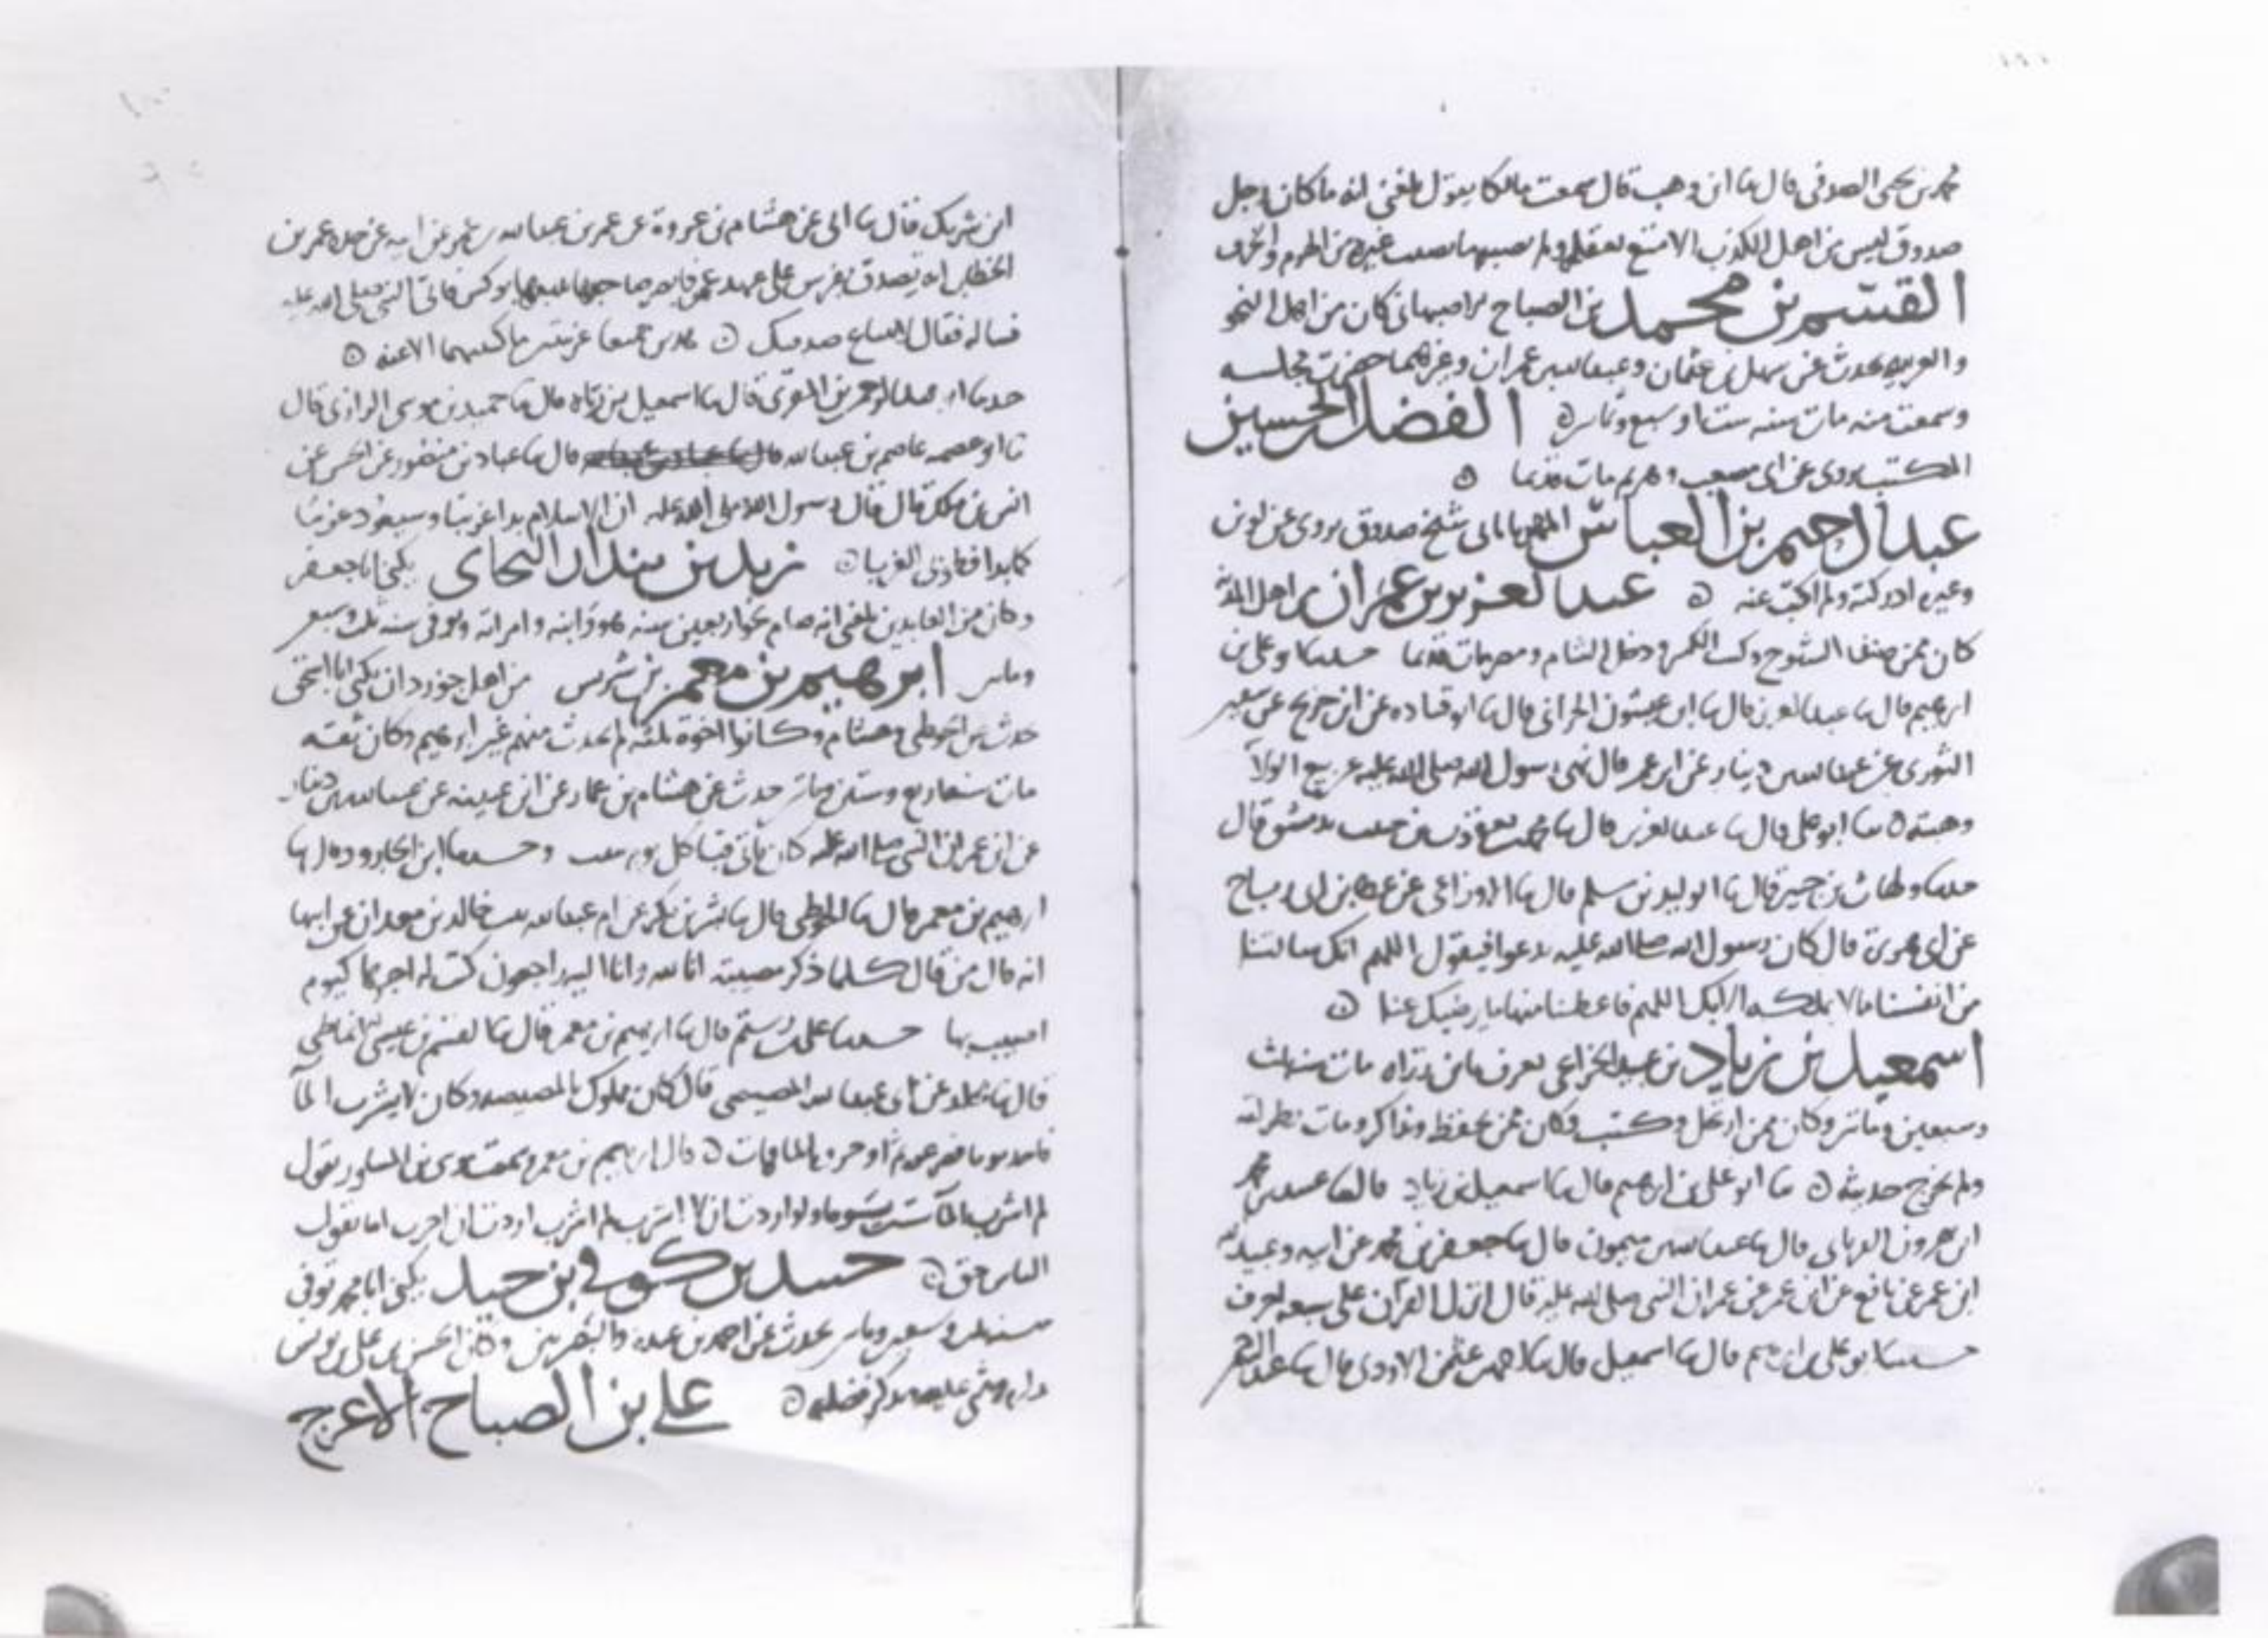 محمد بن يحيى الصدفي قال ثنا ابن وهب قال سمعت مالكا يقول بلغني انه ما كان رجل
صدوق ليس من اهل الكذب الا متع بعقله ولم يصبه ما يصيب غيره من الهرم والخرف
القسم بن محمد بن الصباح اصبهاني كان من اهل النحو
والعربيه يحدث عن سهل بن عثمان وعبد الله بن عمران وغيرهما حضرت مجلسه
وسمعت منه مات سنه ست او سبع وثمانين ۞ الفضل بن الحسين
المكتب يروي عن ابي مصعب وغيره مات قديما ۞
عبد الرحيم بن العباس شيخ صدوق يروي عن لوين
وغيره ادركته ولم اكتب عنه ۞ عبد العزيز بن عمران من اهل المدينة
كان ممن صنف الشيوخ وكتب الكثير ودخل الشام ومصر مات قديما حدثنا ابو علي بن
ابرهيم قال ثنا عبد العزيز قال ثنا ابن عيشون الحراني قال ثنا ابو قتاده عن ابن جريج عن سفين
الثوري عن عبد الله بن دينار عن ابن عمر قال نهى رسول الله صلى الله عليه عن بيع الولا
وهبته ۞ ثنا ابو علي قال ثنا عبد العزيز قال ثنا محمد بن يعقوب بن حبيب بدمشق قال
حدثنا بن جبير قال ثنا الوليد بن مسلم قال ثنا الاوزاعي عن عطا بن ابي رباح
عن ابي هريرة قال كان رسول الله صلى الله عليه يدعوا فيقول اللهم انك سالتنا
من انفسنا ما لا نملكه الا بك اللهم فاعطنا منها ما يرضيك عنا ۞
اسمعيل بن زياد بن عبيد الخزاعي يعرف بابن زراه مات سنه ثلث
وسبعين ومائتين وكان ممن ارتحل وكتب وكان ممن يحفظ ويذاكر ومات
ولم يخرج حديثه ۞ ثنا ابو علي بن ابرهيم قال ثنا اسمعيل بن زياد قال ثنا عبيد بن محمد
ابن هرون الفريابي قال ثنا عبد الله بن ميمون قال ثنا جعفر بن محمد عن ابيه وعبيد الله
ابن عمر عن نافع عن ابن عمر عن عمر ان النبي صلى الله عليه قال انزل القران على سبعه احرف
حدثنا ابو علي بن ابرهيم قال ثنا اسمعيل قال ثنا احمد بن عثمن الاودي قال ثنا عبد الرحمن
ابن شريك قال ثنا ابي عن هشام بن عروة عن عمر بن عبد الله بن عمر عن ابيه عن جده عمر بن
الخطاب انه تصدق بفرس على عهد صاحبها يبيعها بوكس فاتى النبي صلى الله عليه
فساله فقال لا تبتاع صدقتك ۞ غريبين ما كتبتهما الا عنه ۞
حدثنا ابو عبد الرحمن بن المقرئ قال ثنا اسمعيل بن زراه قال ثنا حميد بن موسى الرازي قال
ثنا ابو عصمه عاصم بن عبد الله قال ثنا عباد بن منصور عن الحسن عن
انس بن ملك قال قال رسول الله صلى الله عليه ان الاسلام بدا غريبا وسيعود غريبا
كما بدا فطوبى للغربا ۞ زيد بن بندار النخاي يكنى ابا جعفر
وكان من العابدين بلغني انه صام نحو اربعين سنه هو وابنه وامراته وتوفي سنه ثلث وسبعين
ومائتين ابرهيم بن معمر بن شريس من اهل جوزدان يكنى ابا اسحق
حدث عن الحوطي وهشام وكانوا اخوة ثلثه لم يحدث منهم غير ابرهيم وكان ثقه
مات سنه اربع وستين ومائتين حدث عن هشام بن عمار عن ابن عيينه عن عبد الله بن دينار
عن ابن عمر ان النبي صلى الله عليه كان ياتي قبا كل يوم سبت وحدثنا ابن الجارود قال ثنا
ابرهيم بن معمر قال ثنا الحوطي قال ثنا بشر بن بكر عن ام عبد الله بنت خالد بن معدان عن ابيها
انه قال من قال كلما ذكر مصيبته انا لله وانا اليه راجعون كتب له اجرها كيوم
اصيب بها حدثنا علي بن رستم قال ثنا ابرهيم بن معمر قال ثنا الفيض بن عيسى
قال ثنا مخلد عن ابي عبد الله المصيصي قال كان مملوك بالمصيصه وكان لا يشرب الما
۞ قال ابرهيم بن معمر سمعت موسى بن المساور يقول
لم اشرب الما ستين يوما ولو اردت ان لا اشرب لم اشرب اردت ان اجرب اما يقول
الناس حق ۞ حميد بن كوفي بن حميد يكنى ابا محمد توفي
سنه وسبعين ومائتين يحدث عن احمد بن عبده والبصريين وكان الحسن بن علي بن يونس
يثني عليه ويذكر فضله ۞ علي بن الصباح الاعرج